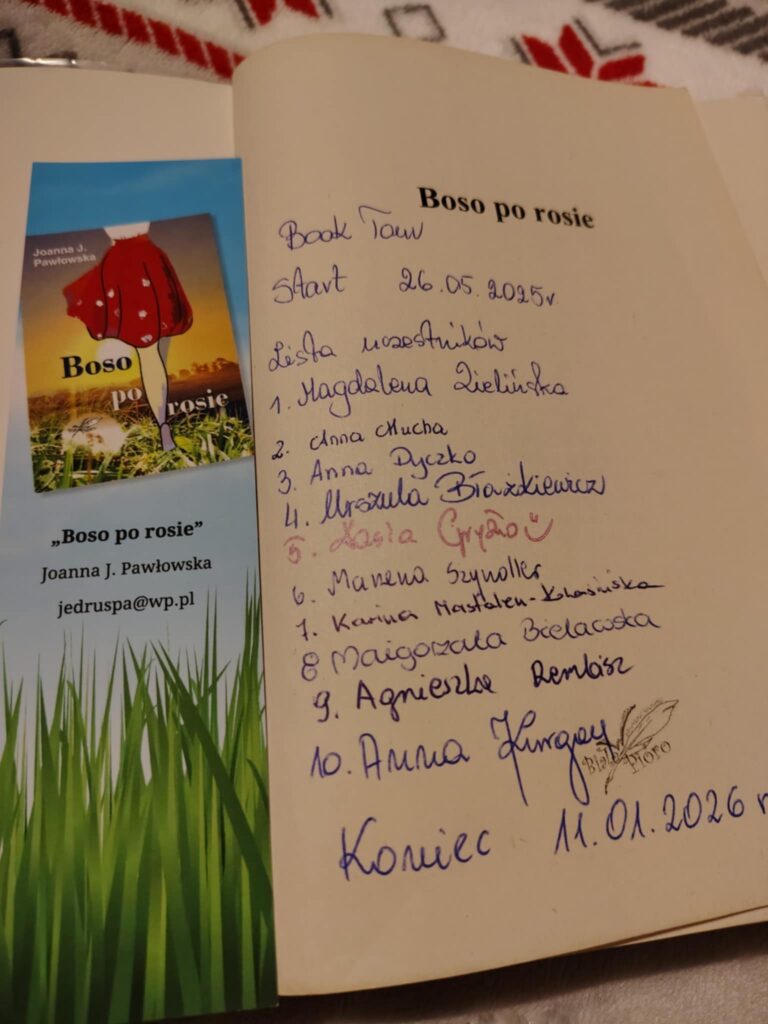 Joanna J.
Pawłowska
Boso
po
rosie
„Boso po rosie”
Joanna J. Pawłowska
jedruspa@wp.pl
Boso po rosie
Book Tour
Start 26.05.2025r
Lista uczestników
1. Magdalena Zielińska
2. Anna Mucha
3. Anna Dyczko
4. Urszula Błażkiewicz
5. Kasia Gryzło
6. Marzena Szynoller
7. Karina Mastalerz-
8 Małgorzata Bielawska
9. Agnieszka Rembisz
10. Anna Kurgan
Białe Pióro
Koniec 11.01.2026 r